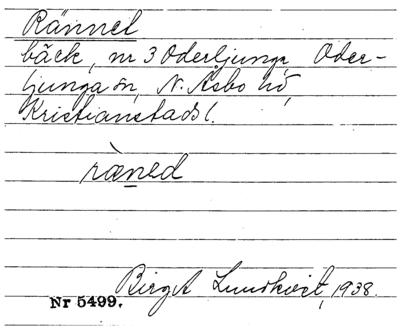 Rännel
bäck, nr 3 Oderljunga, Oder-
ljunga sn, N. Åsbo hd,
Kristianstads l.
ràned
Birgit Lundkvist, 1938.
Nr 5499.